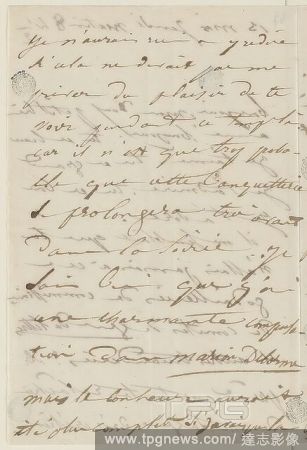 15 mai jeudi
je n'aurais rien à redire
si cela ne devait pas me
priver du plaisir de te
voir pendant ce temps là
car il n'est que trop proba-
ble que cette
se prolongera trop avant
dans la soirée. je
sais bien que j'ai
une charmante compensa-
tion dans Marion Delorme
mais le bonheur aurait
été plus complet si
www.tpgnews.com / 達志影像